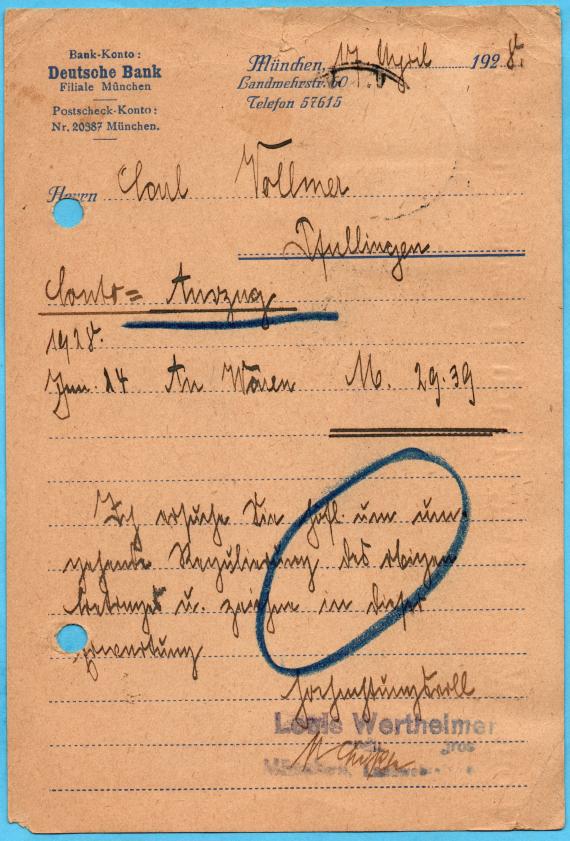 Bank-Konto:
Deutsche Bank
Filiale München
Postscheck-Konto:
Nr. 20387 München.
München, 17. April 1928.
Landwehrstr. 60
Telefon 57615
Herrn Carl Vollmer
Pfullingen
Conto = Auszug
1928.
Jan. 24 An Waren M. 29.39
Ich ersuche Sie höfl. um um-
gehende Regulierung des obigen
Betrages u. zeichne in dieser
Erwartung
Hochachtungsvoll
Louis Wertheimer
gros
München, Landweh